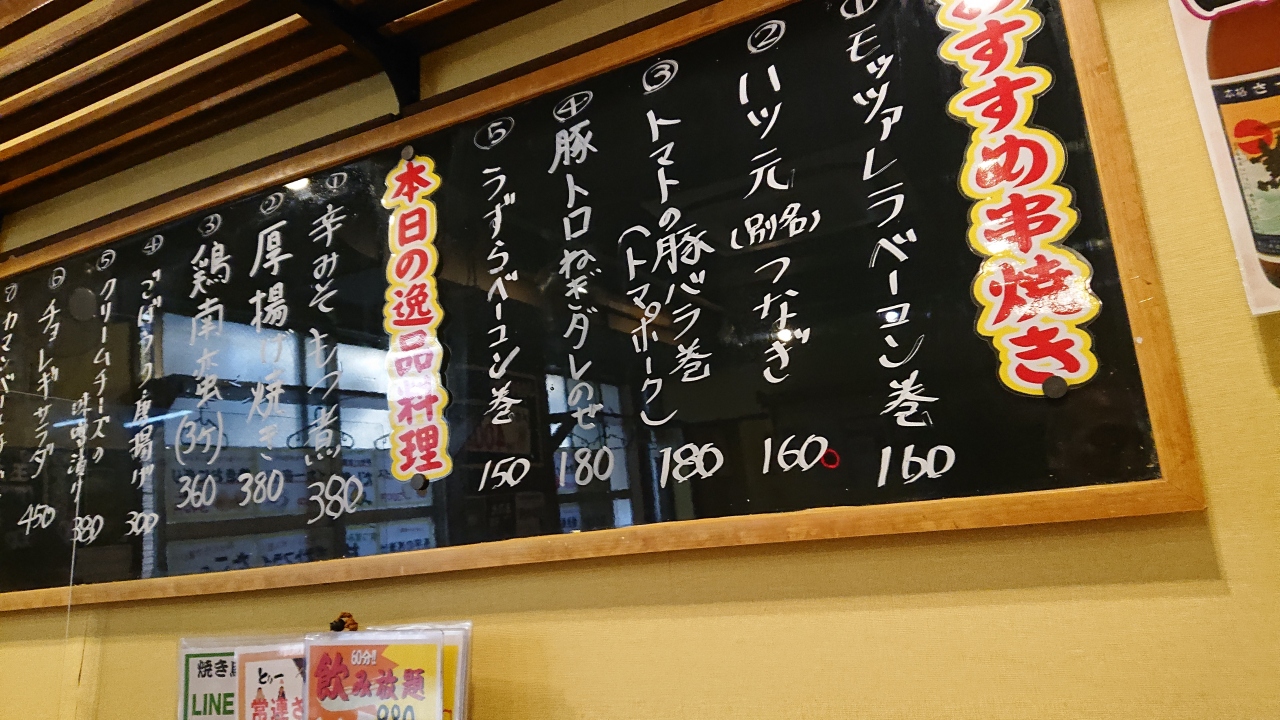 おすすめ串焼き
① モッツァレラベーコン巻 160
② ハツ元 (別名) つなぎ 160
③ トマトの豚バラ巻
(トマポーク) 180
④ 豚トロねぎダレのせ 180
⑤ うずらベーコン巻 150
本日の逸品料理
① 辛みそもつ煮 380
② 厚揚げ焼き 380
③ 鶏南蛮(3ケ) 360
④ ごぼう 唐揚げ 300
⑤ クリームチーズの
味噌漬け 380
⑥ チョレギサラダ 450
⑦ カマンベール
焼き鳥
LINE
とりー
常連さ
60分!!
飲み放題
980
本格